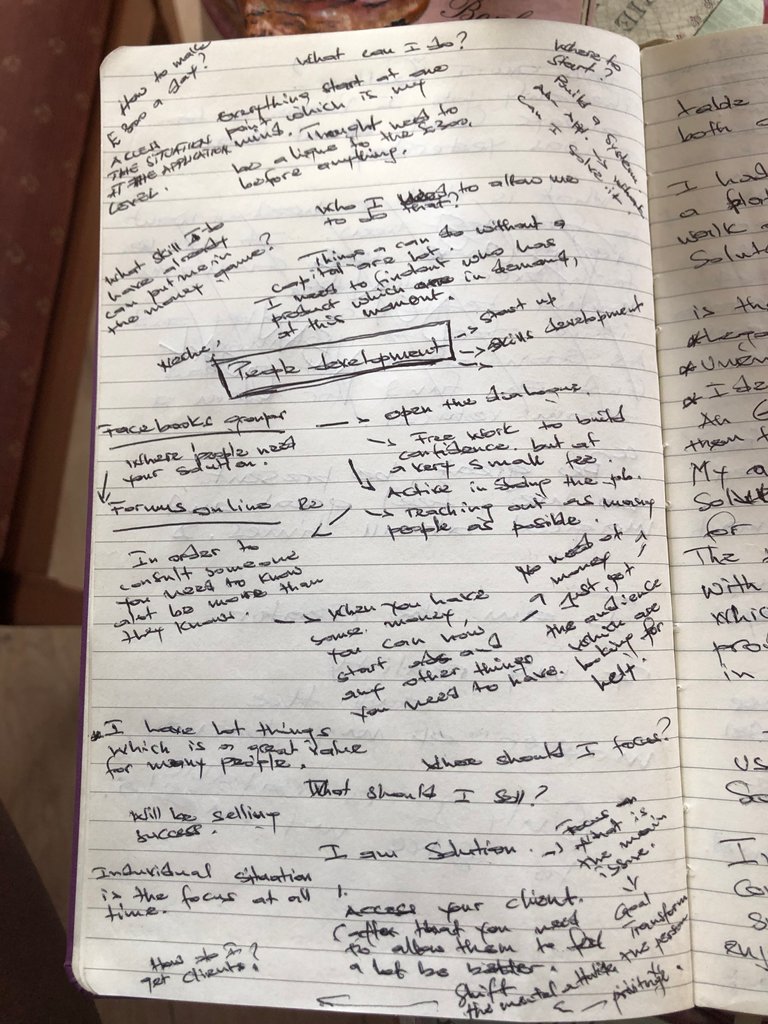 How to make
£300 a day?
What can I do?
Where to
start?
Everything start at one
point which is my
mind. Thought need to
be alique to the £300.
before anything.
ACCESS
THE SITUATION
AT THE APPLICATION
LEVEL.
Build a System
can I solve it.
Who I need to allow me
to do that?
What skill I
have already
can put me in
the money game?
Things a can do without a
capital are lot.
I need to findout who has
product which are in demand,
at this moment.
People development
-> Start up
-> Skills development
->
Facebooks groups
Where people need
your solution.
-> open the dialogue.
-> Free work to build
confidence. but at
a very small fee.
Active in the job.
-> Reaching out as many
people as posible.
Forums online
In order to
consult someone
you need to know
alot be more than
they know.
--> When you have
some money,
you can now
start and
any other things
you need to have.
No need of
money
Just get
the audience
which are
looking for
help!
* I have lot things
which is a great value
for many people.
Where should I focus?
What should I sell?
Will be selling
success.
I am Solution. ->
Focus on
what is
the main
issue.
Individual situation
is the focus at all
time.
Access your client.
(after that you need
to allow them to feel
a lot be better.
Shift
the mental attitude
Goal
Transform
the person
How do I
get clients?
table
both
I had
a
walk
Solut
is the
*
*
* I
An
them
My
for
The
with
which
pro
in
us
So
I